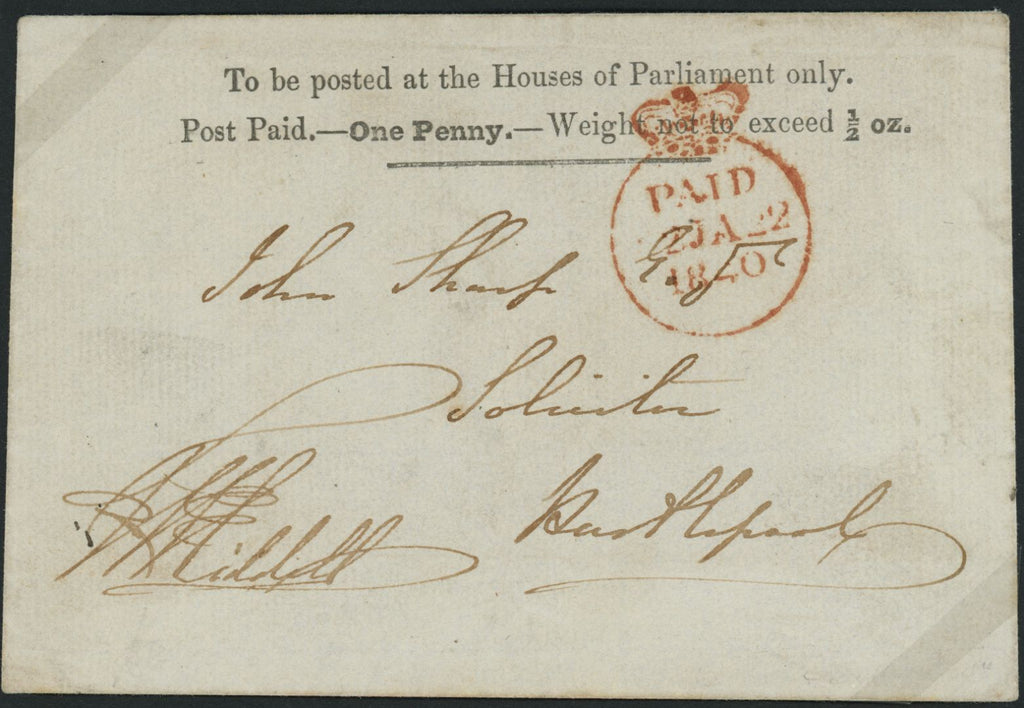 To be posted at the Houses of Parliament only.
Post Paid.—One Penny.—Weight not to exceed ½ oz.
PAID
JA 22
1840
John Sharp Esqre
Solicitor
Hartlepool
Liddell